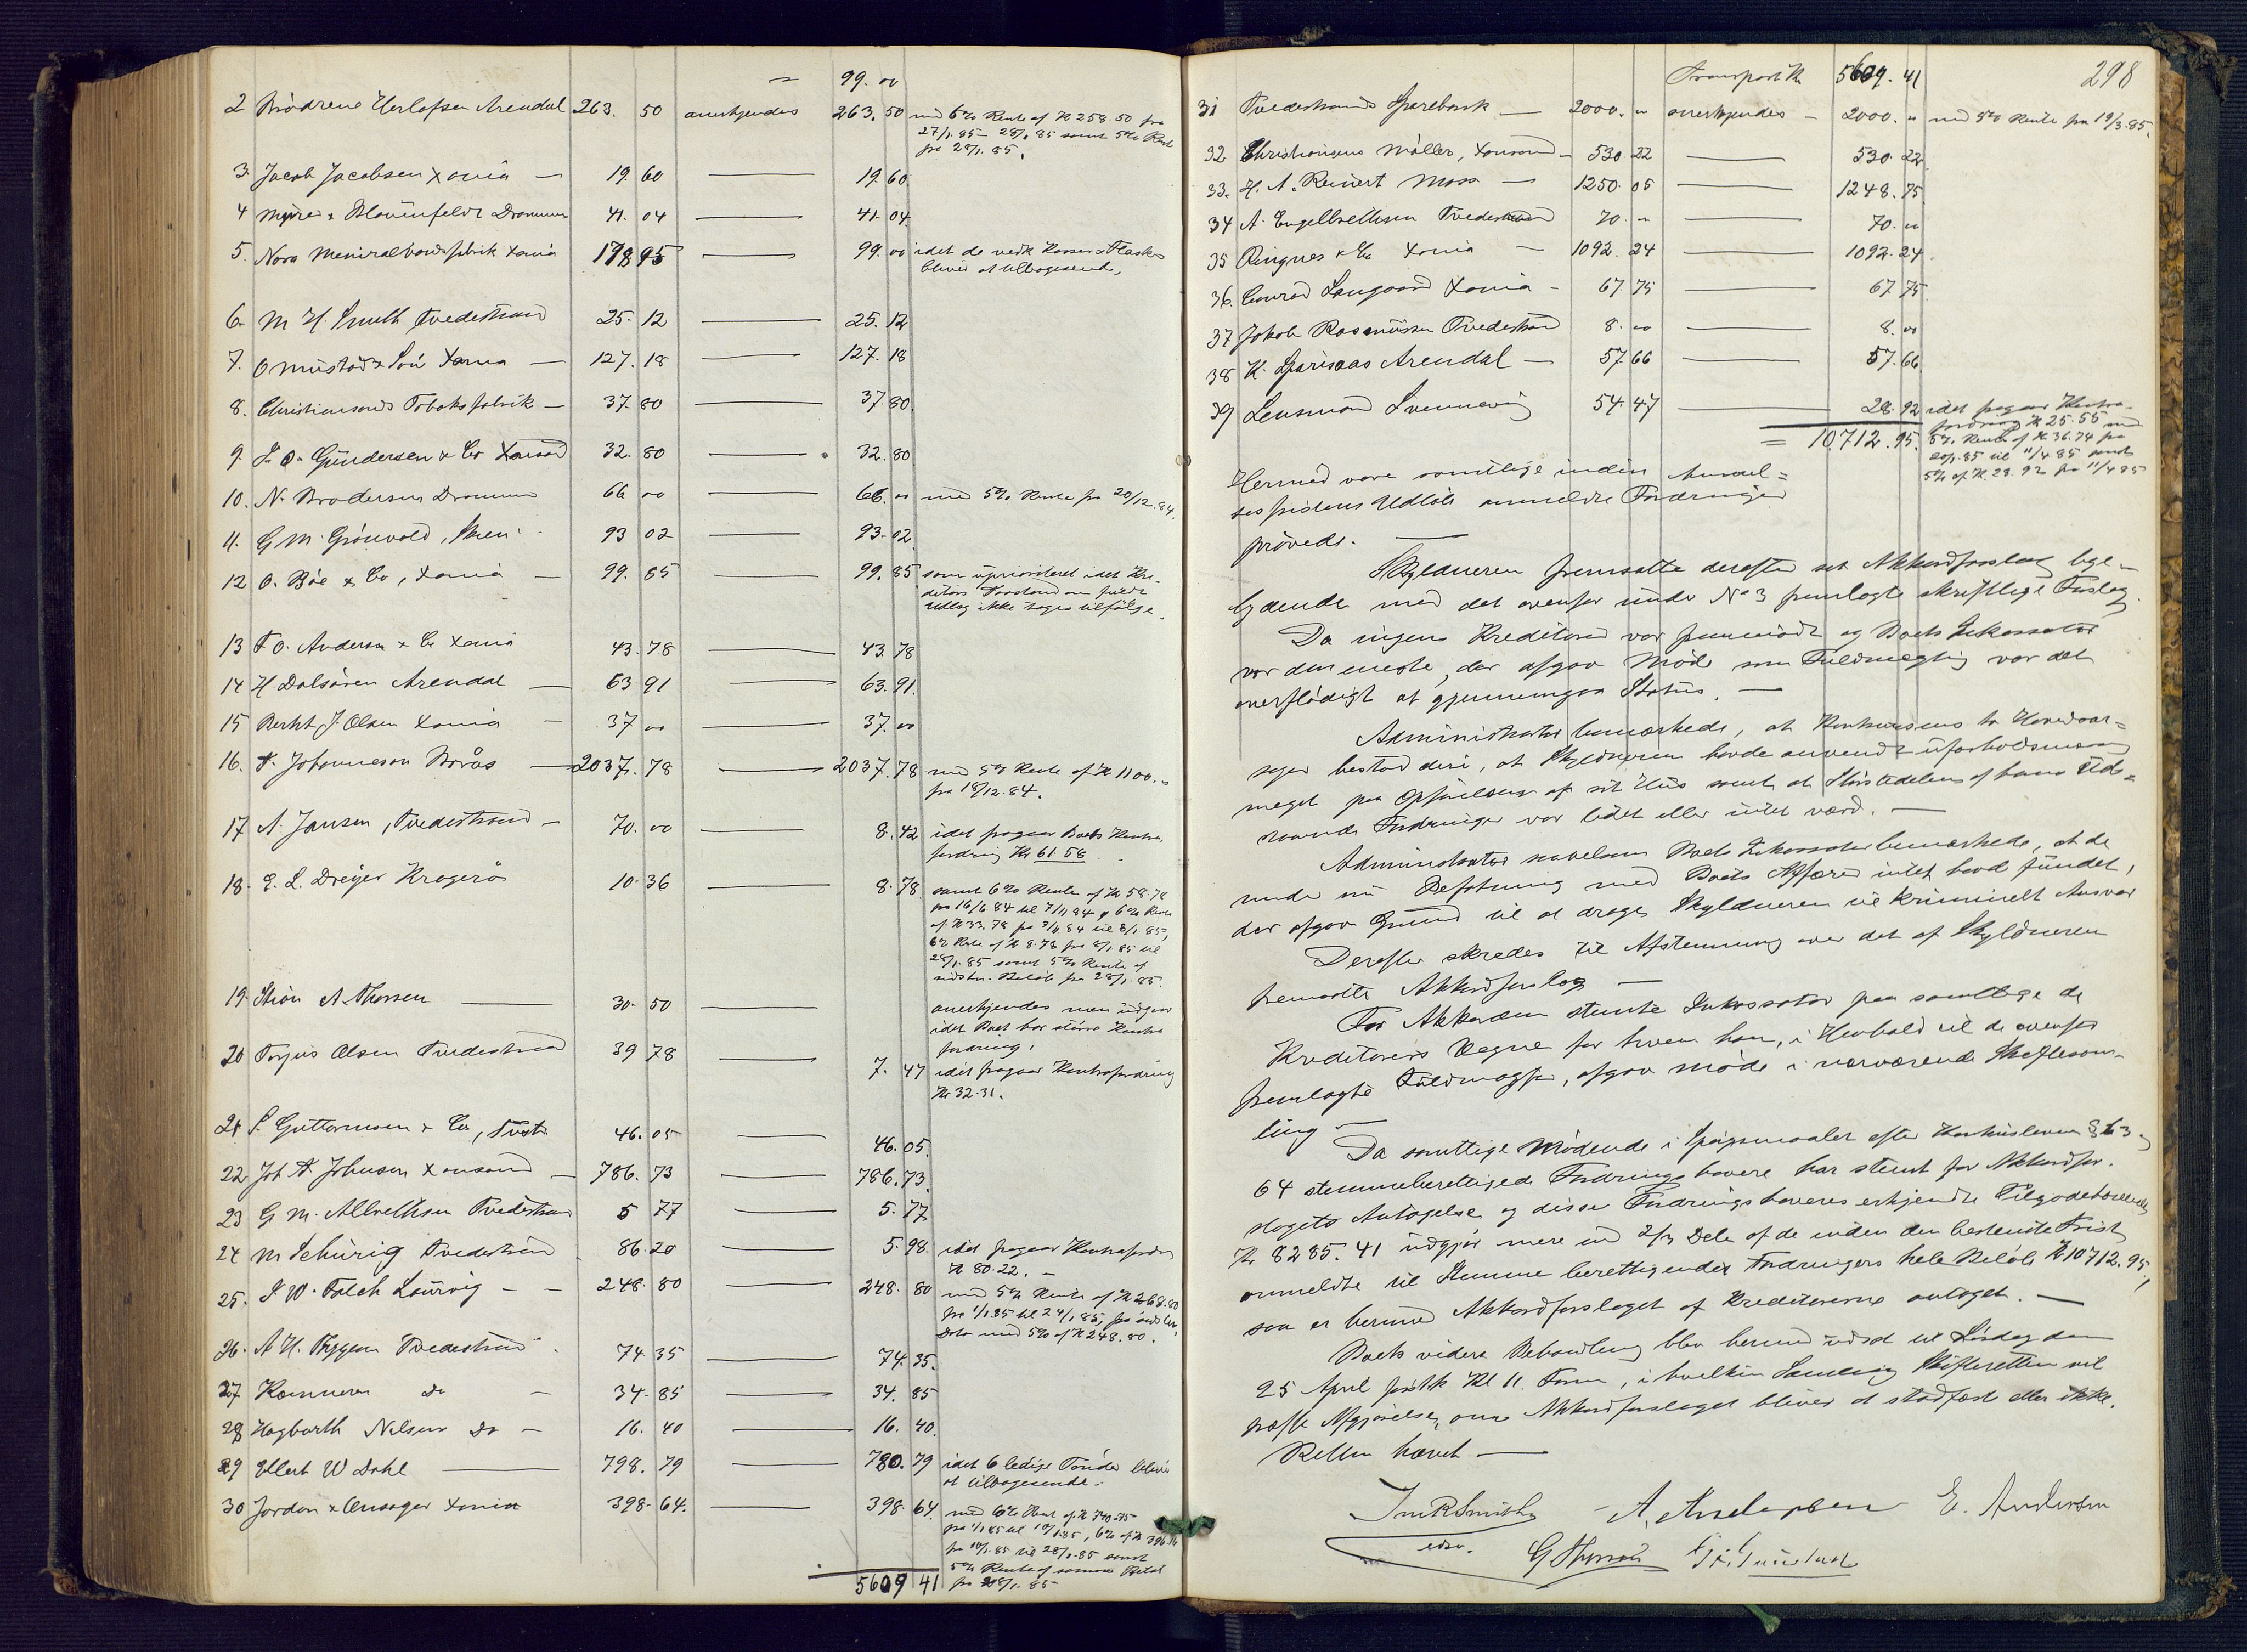 " 99. 00
2 Brødrene Herlofsen Arendal 263. 50 anerkjendes 263. 50 med 6% Rente af Kr 258.50 fra
27/1.85 - 28/1.85 samt 5% Rente
fra 28/1.85.
3. Jacob Jacobsen Xania — 19. 60 — 19. 60.
4 Myhre & Blauenfeldt Drammen 41. 04 — 41. 04.
5. Nora Mineralvandfabrik Xania 178 95 — 99. 00 idet de vedk Kasser & Flasker
bliver at tilbagesende,
6. M H. Smith Tvedestrand 25. 12 — 25. 12
7. O Mustad & Søn Xania — 127. 18 — 127. 18
8. Christiansands Tobaksfabrik — 37. 80 — 37 80.
9. S. O. Gundersen & Co Xansand 32. 80 — 32. 80
10. N. Brodersen Drammen 66 00 — 66. 00 med 5% Rente fra 20/12.84.
11. G M. Grønvold, Skien 93 02 — 93. 02
12 O. Bøe & Co, Xania — 99. 85 — 99. 85 som uprioriteret idet Kre-
ditors Paastand om fuldt
Udlæg ikke tages tilfølge.
13 F O. Andersen & Co Xania 43. 78 — 43. 78
14 H Dalsøren Arendal — 63 91 — 63. 91.
15 Berht J. Olsen Xania — 37 00 — 37. 00
16. F. Johannesson Borås — 2037. 78 — 2037. 78 med 5% Rente af Kr 1100. "
fra 18/12.84.
17 A. Jansen, Tvedestrand — 70. 00 — 8. 42 idet fragaar Boets Kontra
fordring Kr 61.58
18. E. L. Dreyer Kragerø 10. 36 — 8. 78 samt 6% Rente af Kr 58.78
fra 16/6 84 til 7/11 84 & 6% Rente
af Kr 33.78 fra 7/11 84 til 8/1.85,
6% Rente af Kr 8.78 fra 8/1.85 til
28/1.85 samt 5% Rente af
sidstn. Beløb fra 28/1.85.
19. Stian A. Thorsen — 30. 50 — anerkjendes men udgaar
idet Boet har større Kontra
fordring.
20 Torjus Olsen Tvedestrand 39 78 — 7. 47 idet fragaar Kontrafordring
Kr 32.31.
21 S. Guttormsen & Co, Tvestr 46. 05 — 46. 05.
22 Joh F Johnsen Xansand — 786. 73 — 786. 73.
23 G M. Albrethsen Tvedestrand 5 77 — 5. 77
24 M Schürig Tvedestrand 86. 20 — 5. 98. idet fragaar Kontrafordr
Kr 80.22. —
25. S W. Falch Laurvig — 248. 80 — 248. 80 med 5% Rente af Kr 268.80
fra 1/1 85 til 24/1 85, fra sidstn.
Dato med 5% af Kr 248.80.
26. A H. Thygesen Tvedestrand 74 35 — 74. 35.
27 Kæmneren Do — 34. 85 — 34. 85
28 Hagbarth Nilsen Do — 16. 40 — 16. 40.
29 Ellert W Dahl — 798. 79 — 780. 79 idet 6 ledige Tønder bliver
at tilbagesende.
30 Jordan & Onsager Xania 398. 64. — 398. 64 med 6% Rente af Kr 740.75
fra 1/1 85 til 10/1.85, 6% af Kr 396.16
fra 10/1.85 til 28/1.85 samt
5% Rente af samme Beløb
fra 28/1.85
5609 41
298
Transport Kr 5609. 41
31 Tvedestrands Sparebank — 2000. " anerkjendes — 2000. " med 5% Rente fra 19/3.85.
32 Christiansens Møller, Xansand — 530 22 — 530. 22.
33. H. A. Reinert Moss — 1250. 05 — 1248. 75.
34 A. Engelbrethsen Tvedestrand 70. " — 70. 00
35 Ringnes & Co Xania — 1092. 24 — 1092. 24.
36. Conrad Langaard Xania — 67. 75 — 67 75.
37 Jakob Rasmussen Tvedestrand 8. 00 — 8. 00
38 K. Sparsaas Arendal — 57. 66 — 57. 66.
39 Lensmand Svennevig 54. 47 — 28. 92 idet fragaar Kontra-
fordring Kr 25.55 med
= 10,712. 95. 5% Rente af Kr 36.74 fra
til 11/4 85 samt
5% af Kr. 28.92 fra 11/4 85
Hermed vare samtlige inden Anmel=
desfristens Udløb anmeldte Fordringer
prøvede. —
Skyldneren fremsatte derefter sit Akkordforslag lige-
lydende med det ovenfor under No 3 fremlagte skriftlige Forslag.
Da ingen Kreditorer var fremmødt og Boets Inkassator
var den eneste, der afgav Møde som Fuldmægtig var det
overflødigt at gjennemgaa Status. —
Administrator bemærkede, at Konkursens to Hovedaar=
sager bestod deri, at Skyldneren havde anvendt uforholdsmæssig
meget paa Opførelsen af sit Hus samt at Størstedelen af hans Ude=
staaende Fordringer var lidet eller intet værd. —
Administrator saavelsom Boets Inkassator bemærkede, at de
under sin Befatning med Boets Affærer intet havde fundet,
der afgav Grund til at drage Skyldneren til kriminelt Ansvar
Derefter skredes til Afstemning over det af Skyldneren
fremsatte Akkordforslag —
For Akkorden stemte Inkassator paa samtlige de
Kreditorers Vegne for hvem han, i Henhold til de ovenfor
fremlagte Fuldmagter, afgav Møde i nærværende Skiftesam-
ling —
Da samtlige Mødende i Spørgsmaalet efter Konkursloven § 63 og
64 stemmeberettigede Fordringshavere har stemt for Akkordfor-
slagets Antagelse og disse Fordringshaveres erkjendte Tilgodehavende
Kr 8285.41 udgjør mere end 2/3 Dele af de inden den bestemte Frist
anmeldte til Stemme berettigende Fordringers hele Beløb Kr 10712.95,
saa er hermed Akkordforslaget af Kreditorerne antaget. —
Boets videre Behandling blev hermed udsat til Lørdag den
25 April førstk Kl 11. Form, i hvilken Samling Skifteretten vil
træffe Afgjørelse, om Akkordforslaget bliver at stadfæste eller ikke.
Retten hævet —
Jn R Smith A. Aslaksen E. Andersen
edsv. G Thorsen